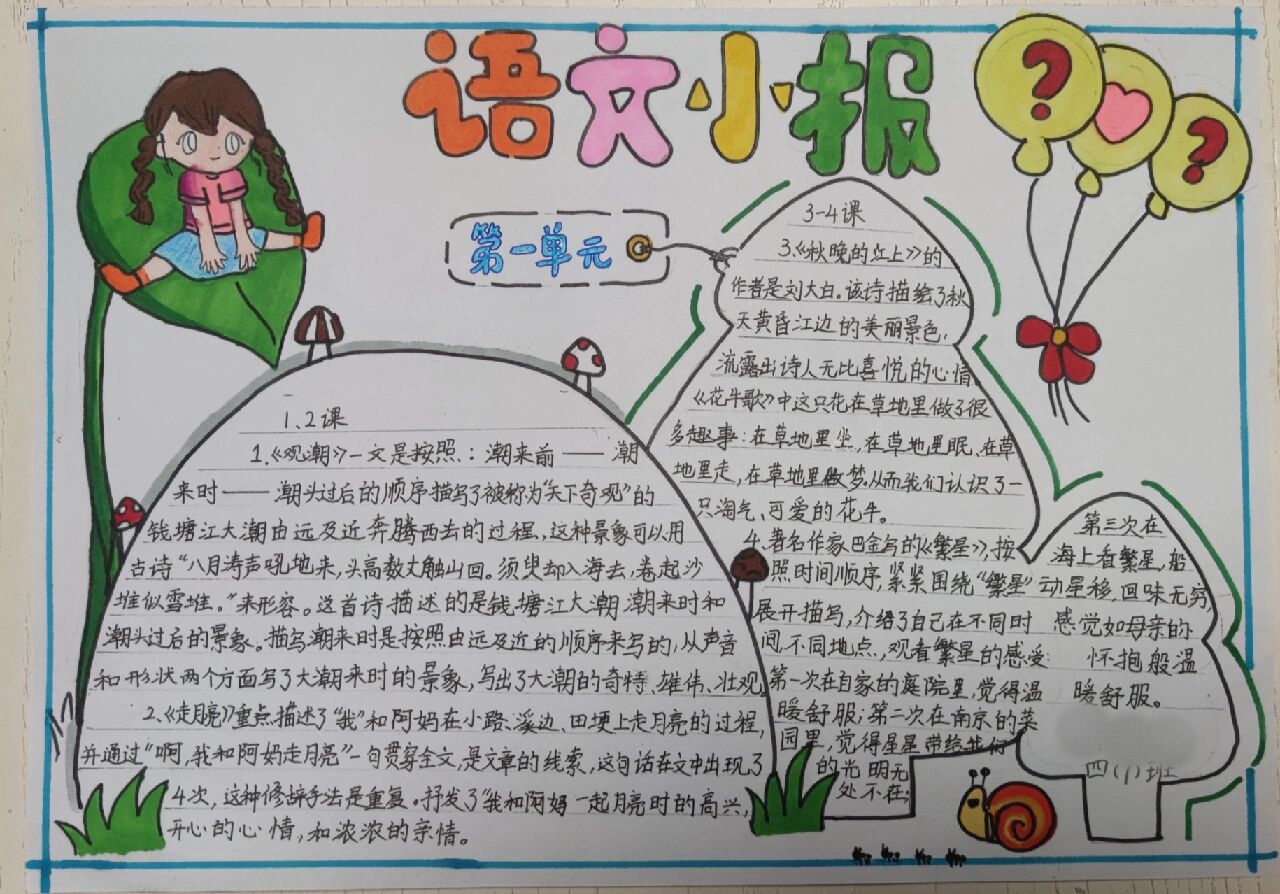 语文小报
第一单元
1.2课
1.《观潮》一文是按照：潮来前——潮
来时——潮头过后的顺序描写了被称为“天下奇观”的
钱塘江大潮由远及近奔腾西去的过程，这种景象可以用
古诗“八月涛声吼地来，头高数丈触山回。须臾却入海去，卷起沙
堆似雪堆。”来形容。这首诗描述的是钱塘江大潮潮来时和
潮头过后的景象。描写潮来时是按照由远及近的顺序来写的，从声音
和形状两个方面写了大潮来时的景象，写出了大潮的奇特、雄伟、壮观。
2.《走月亮》重点描述了“我”和阿妈在小路、溪边、田埂上走月亮的过程，
并通过“啊，我和阿妈走月亮”一句贯穿全文，是文章的线索，这句话在文中出现了
4次，这种修辞手法是重复。抒发了“我和阿妈一起月亮时的高兴，
开心的心情，和浓浓的亲情。
3-4课
3.《秋晚的江上》的
作者是刘大白。该诗描绘了秋
天黄昏江边的美丽景色，
流露出诗人无比喜悦的心情。
《花牛歌》中这只花在草地里做了很
多趣事：在草地里坐，在草地里眠、在草
地里走，在草地里做梦，从而我们认识了一
只淘气、可爱的花牛。
4.著名作家巴金写的《繁星》，按
照时间顺序，紧紧围绕“繁星”
展开描写，介绍了自己在不同时
间，不同地点，观看繁星的感受
第一次在自家的庭院里，觉得温
暖舒服；第二次在南京的菜
园里，觉得星星带给我们
的光明无
处不在；
第三次在
海上看繁星，船
动星移，回味无穷，
感觉如母亲的
怀抱般温
暖舒服。
四(1)班